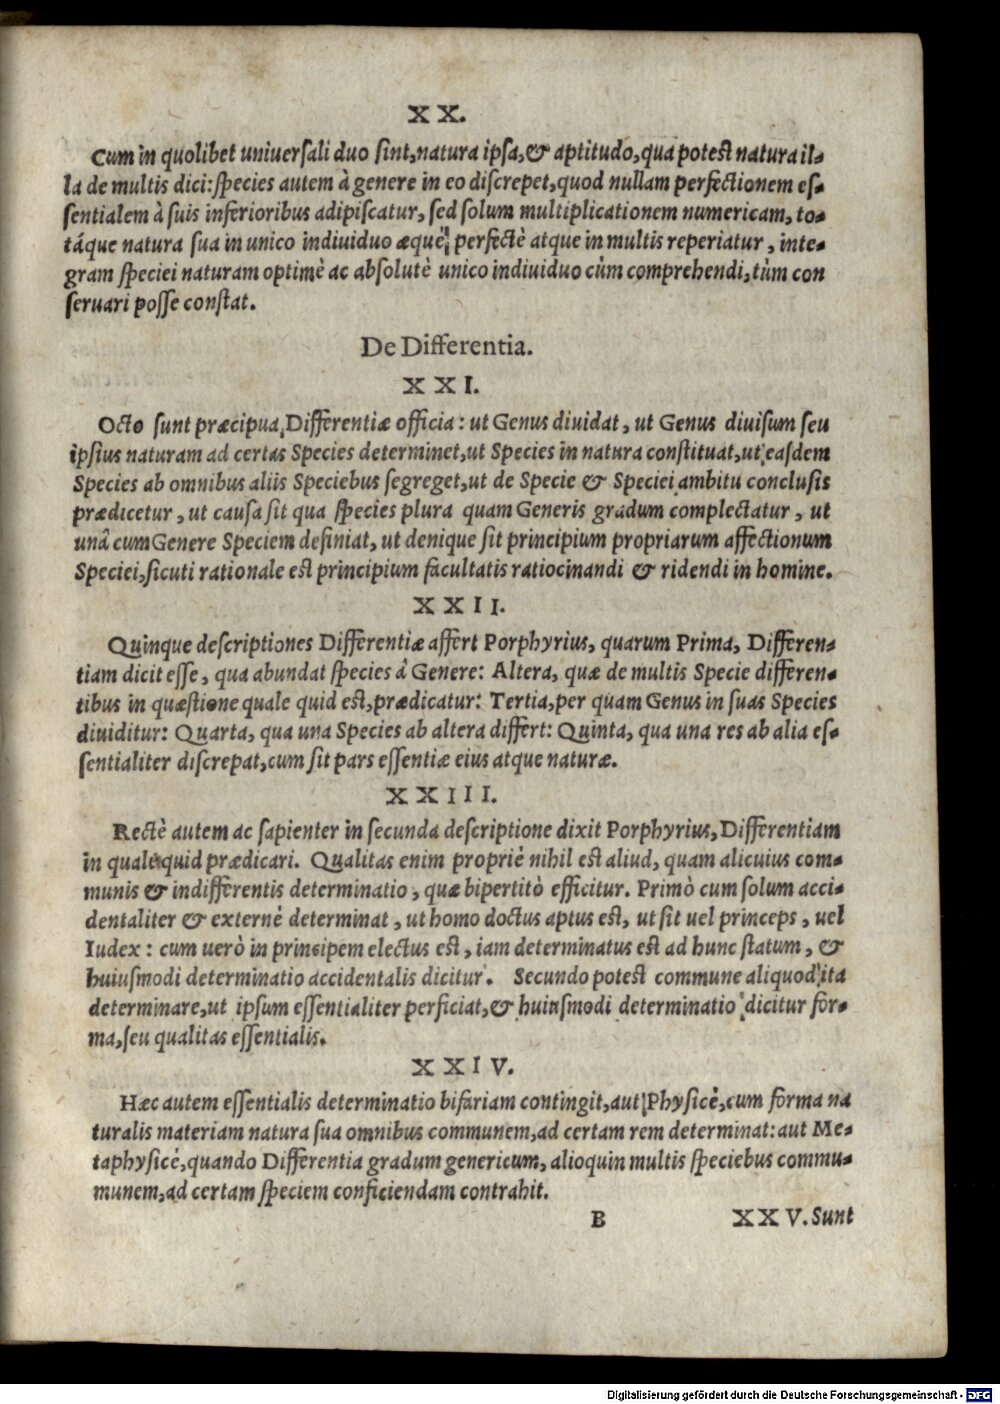 XX.
Cum in quolibet uniuersali duo sint, natura ipsa, & aptitudo, qua potest natura il-
la de multis dici: species autem à genere in eo discrepet, quod nullam perfectionem es-
sentialem à suis inferioribus adipiscatur, sed solum multiplicationem numericam, to-
táque natura sua in unico indiuiduo æquè perfectè atque in multis reperiatur, inte-
gram speciei naturam optimè ac absolutè unico indiuiduo cùm comprehendi, tùm con
seruari posse constat.
De Differentia.
XXI.
Octo sunt præcipua Differentiæ officia: ut Genus diuidat, ut Genus diuisum seu
ipsius naturam ad certas Species determinet, ut Species in natura constituat, ut easdem
Species ab omnibus aliis Speciebus segreget, ut de Specie & Speciei ambitu conclusis
prædicetur, ut causa sit qua species plura quam Generis gradum complectatur, ut
unâ cum Genere Speciem definiat, ut denique sit principium propriarum affectionum
Speciei, sicuti rationale est principium facultatis ratiocinandi & ridendi in homine.
XXII.
Quinque descriptiones Differentiæ affert Porphyrius, quarum Prima, Differen-
tiam dicit esse, qua abundat species â Genere: Altera, quæ de multis Specie differen-
tibus in quæstione quale quid est, prædicatur: Tertia, per quam Genus in suas Species
diuiditur: Quarta, qua una Species ab altera differt: Quinta, qua una res ab alia es-
sentialiter discrepat, cum sit pars essentiæ eius atque naturæ.
XXIII.
Rectè autem ac sapienter in secunda descriptione dixit Porphyrius, Differentiam
in quale quid prædicari. Qualitas enim propriè nihil est aliud, quam alicuius com-
munis & indifferentis determinatio, quæ bipertitò efficitur. Primò cum solum acci-
dentaliter & externè determinat, ut homo doctus aptus est, ut sit uel princeps, uel
Iudex: cum uerò in principem electus est, iam determinatus est ad hunc statum, &
huiusmodi determinatio accidentalis dicitur. Secundo potest commune aliquod ita
determinare, ut ipsum essentialiter perficiat, & huiusmodi determinatio dicitur for-
ma, seu qualitas essentialis.
XXIV.
Hæc autem essentialis determinatio bifariam contingit, aut Physicè, cum forma na
turalis materiam natura sua omnibus communem, ad certam rem determinat: aut Me-
taphysicè, quando Differentia gradum genericum, alioquin multis speciebus commu-
munem, ad certam speciem conficiendam contrahit.
B XXV. Sunt
Digitalisierung gefördert durch die Deutsche Forschungsgemeinschaft - DFG